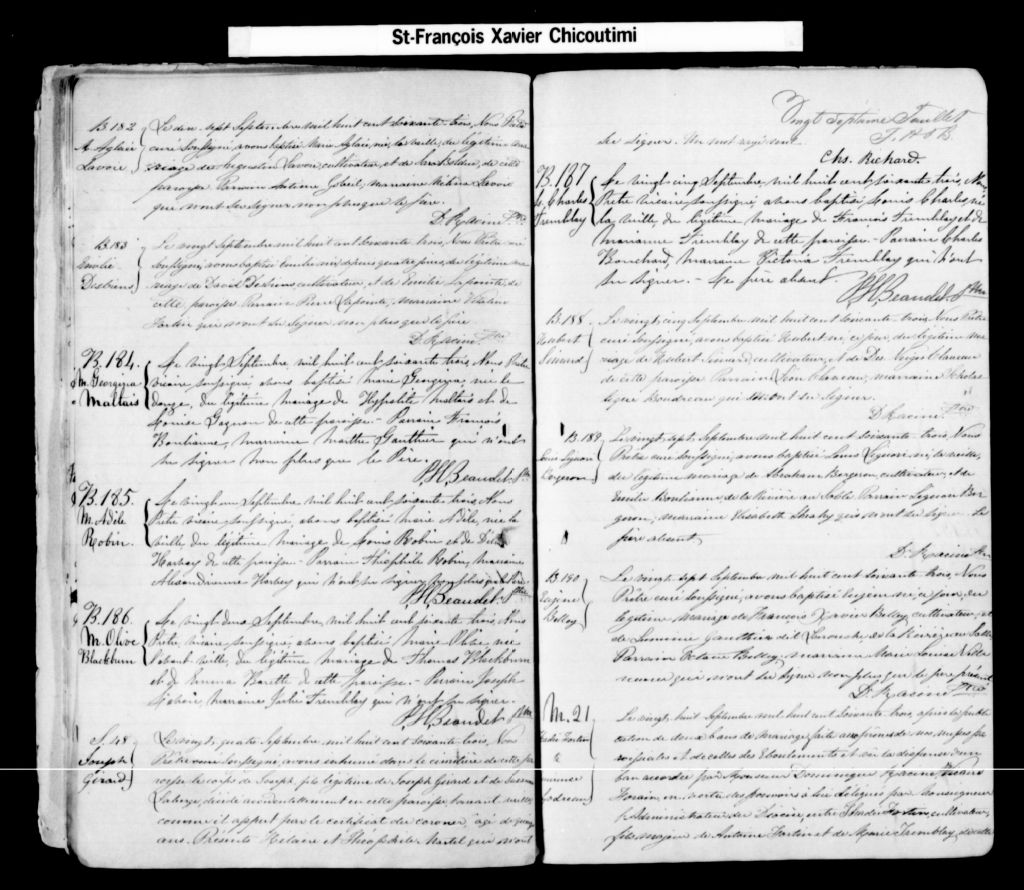 St-François Xavier Chicoutimi
B. 182
M. Aglaée
Lavoie
Le dix-sept Septembre mil huit cent soixante-trois, Nous Prêtre
curé soussigné, avons baptisé Marie Aglaé, née la veille, du légitime ma-
riage de Augustin Lavoie, cultivateur, et de
paroisse. Parrain marraine Lavoie
qui n'ont su signer non plus que le père.
D. Racine Ptre
B. 183
Emilie
Desbiens
Le vingt Septembre mil huit cent soixante trois, Nous Prêtre curé
soussigné, avons baptisé Emilie née depuis quatre jours, du légitime ma-
riage de David Desbiens cultivateur, et de Emilie Lapointe, de
cette paroisse Parrain Pierre Lapointe, marraine
Fortin qui n'ont su signer non plus que le père.
D. Racine Ptre
B. 184.
M. Georgina
Maltais
Le vingt Septembre, mil huit cent soixante trois, Nous Prêtre
vicaire soussigné avons baptisé Marie Georgina née le
du légitime mariage de Hypolite Maltais et de
Louise Gagnon de cette paroisse - Parrain François
Boulianne, marraine Marthe Gauthier qui n'ont
su signer non plus que le Père.
P.H. Beaudet. Ptre
B. 185.
M. Adèle
Robin.
Le vingt un Septembre, mil huit cent soixante trois, Nous
Prêtre vicaire soussigné, avons baptisé Marie Adèle, née la
veille du légitime mariage de Louis Robin et de
Harvay de cette paroisse - Parrain Théophile Robin, marraine
Harvey qui n'ont su signer non plus que le Père.
P.H. Beaudet. Ptre
B. 186.
M. Olive
Blackburn
Le vingt deux Septembre, mil huit cent soixante trois, Nous
Prêtre, vicaire soussigné, avons baptisé Marie Olive née
l'avant-veille, du légitime mariage de Thomas Blackburn
et de Emma de cette paroisse. - Parrain Joseph
marraine Julie Tremblay qui n'ont su signer.
P.H. Beaudet Ptre
S. 48
Joseph
Girard
Le vingt-quatre Septembre mil huit cent soixante-trois, Nous
Prêtre curé soussigné, avons enterré dans le cimetière de cette pa-
roisse le corps de Joseph, fils légitime de Joseph Girard et de
décédé accidentellement en cette paroisse,
comme il appert par le certificat du coroner, âgé de
ans. Présents Hilaire et Théophile Martel qui n'ont
Vingt Septième Feuillet
su signer. Un mot rayé nul.
Chs. Richard.
B. 187
Ls. Charles
Tremblay
Le vingt cinq Septembre, mil huit cent soixante trois, Nous
Prêtre vicaire soussigné, avons baptisé Louis Charles né
la veille, du légitime mariage de François Tremblay et de
Marianne Tremblay de cette paroisse - Parrain Charles
Bouchard, marraine Victoria Tremblay qui n'ont
su signer. - Le père absent.
P.H. Beaudet. Ptre
B. 188.
Hubert
Simard
Le vingt cinq Septembre mil huit cent soixante-trois, Nous Prêtre
curé soussigné, avons baptisé Hubert né ce jour, du légitime ma-
riage de Hubert Simard, cultivateur, et de
de cette paroisse Parrain marraine Scholas-
tique Boudreau qui n'ont su signer.
D. Racine Ptre
B. 189.
Louis Liguori
Bergeron
Le vingt-sept Septembre mil huit cent soixante-trois, Nous
Prêtre curé soussigné, avons baptisé Louis Liguori, né la veille,
du légitime mariage de Abraham Bergeron cultivateur, et de
Emilie Boulianne, de la Rivière au Sable Parrain Ber-
geron, marraine Elisabeth qui n'ont su signer. Le
père absent.
D. Racine Ptre
B. 190
Eugène
Belley
Le vingt-sept Septembre mil huit cent soixante-trois, Nous
Prêtre curé soussigné, avons baptisé Eugène né ce jour, du
légitime mariage de François Xavier Belley cultivateur, et
de Gauthier dit Larouche, de la Rivière au Sable
Parrain Belley, marraine Marie Louise
qui n'ont su signer non plus que le père présent
D. Racine Ptre
M. 21
Fortin
&
Godreau
Le vingt-huit Septembre mil huit cent soixante-trois, après la publi-
cation de deux bans de mariage, faite aux prônes de nos messes pa-
roissiales et de celles des Eboulements et vu la dispense d'un
ban accordée par Monsieur Dominique Racine, Vicaire
Forain, en vertu des pouvoirs à lui délégués par Monseigneur
l'Administrateur du Diocèse, entre Fortin, cultivateur,
fils majeur de Antoine Fortin et de Marie Tremblay, de cette